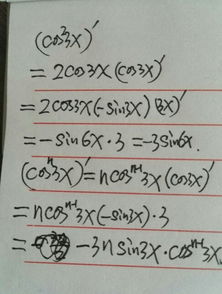 (cos²3x)′
= 2cos3x (cos3x)′
= 2cos3x(-sin3x)(3x)′
= -sin6x·3 = -3sin6x.
(cosⁿ3x)′ = ncosⁿ⁻¹3x (cos3x)′
= ncosⁿ⁻¹3x(-sin3x)·3
= -3n sin3x·cosⁿ⁻¹3x